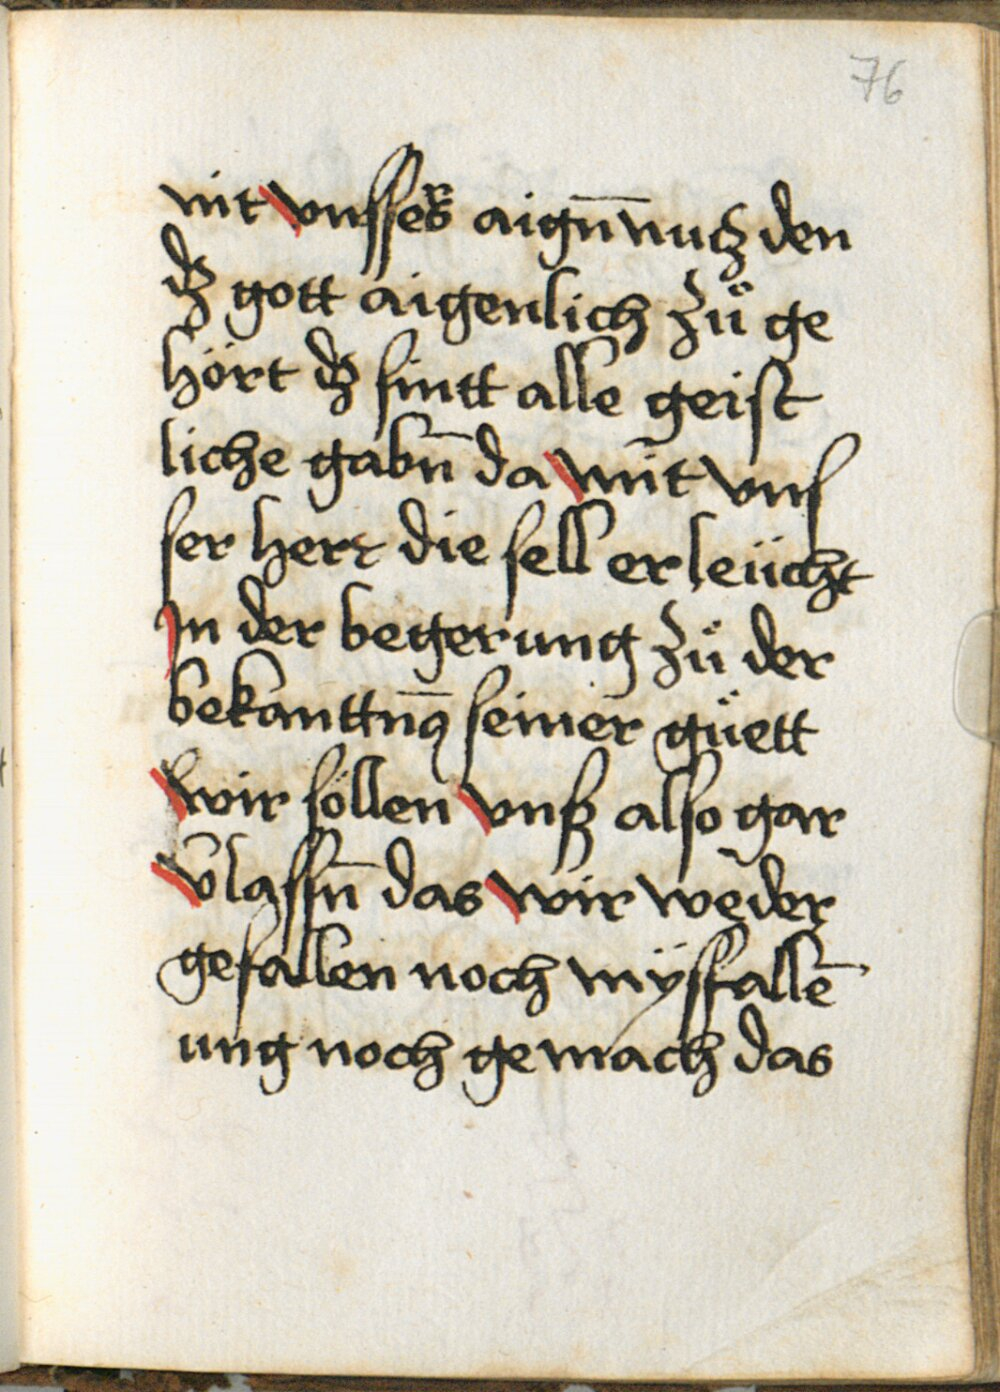 76
nit vnssers aign̄ nutz den
dz gott aigenlich zů ge
hört dz sintt alle geist
liche gabn̄ da mit vns
ser herr die sell erleücht
In der begerung zů der
bekanttnq̄ seiner gůett
wir söllen vnß also gar
v̄lassn̄ das wir weder
gefallen noch mÿsfallē
ung noch gemach das